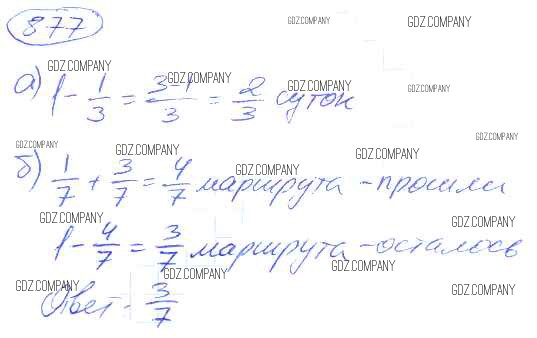 877
а) 1 - 1/3 = 3-1/3 = 2/3 суток
б) 1/7 + 3/7 = 4/7 маршрута - прошли
1 - 4/7 = 3/7 маршрута - осталось
Ответ - 3/7
GDZ.COMPANY GDZ.COMPANY
GDZ.COMPANY GDZ.COMPANY GDZ.COMPANY GDZ.COMPANY
GDZ.COMPANY GDZ.COMPANY GDZ.COMPANY GDZ.COMPANY GDZ.COMPANY
GDZ.COMPANY GDZ.COMPANY
GDZ.COMPANY GDZ.COMPANY GDZ.COMPANY GDZ.COMPANY